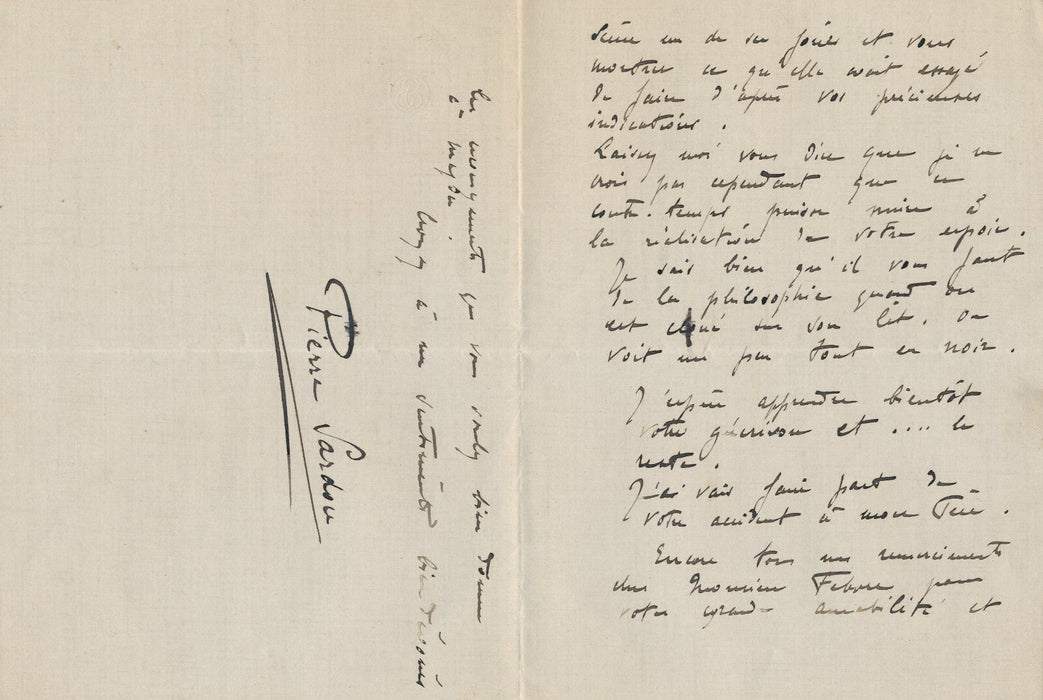 Série un de ses jours et vous
montrer ce qu'elle avait essayé
de faire d'après vos précieuses
indications.
Laissez moi vous dire que je ne
crois pas cependant que ce
contre-temps puisse nuire à
la réalisation de votre espoir.
Je sais bien qu'il vous faut
de la philosophie quand on
est cloué sur son lit. On
voit un peu tout en noir.
J'espère apprendre bientôt
votre guérison et .... le
reste.
J'ai vais faire part de
votre accident à mon Père.
Encore tous mes remerciements
cher Monsieur Febvre pour
votre grande amabilité et
les que vous voulez bien donner
à
Croyez à mes sentiments bien dévoués
Pierre Sardou